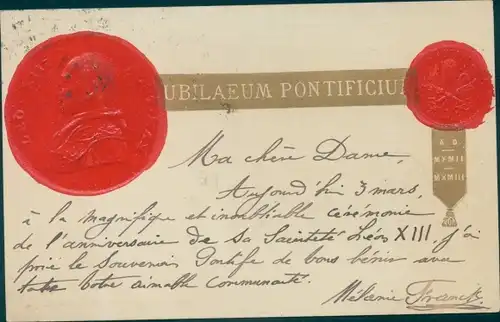 LEO XIII
JUBILAEUM PONTIFICIUM
A D
MXMII
MXMIII
Ma chère Dame,
Aujourd'hui 3 mars,
à la magnifique et inoubliable cérémonie
de l'anniversaire de Sa Sainteté Léon XIII, j'ai
prié le Souverain Pontife de vous bénir avec
toute votre aimable Communauté.
Mélanie Franck